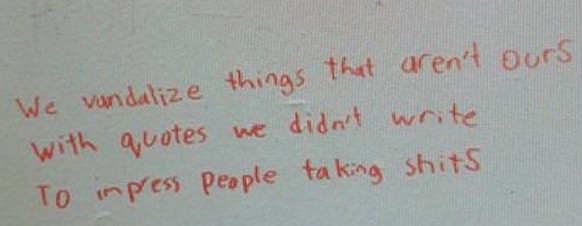 We vandalize things that aren't ours
with quotes we didn't write
To inpress people taking shits